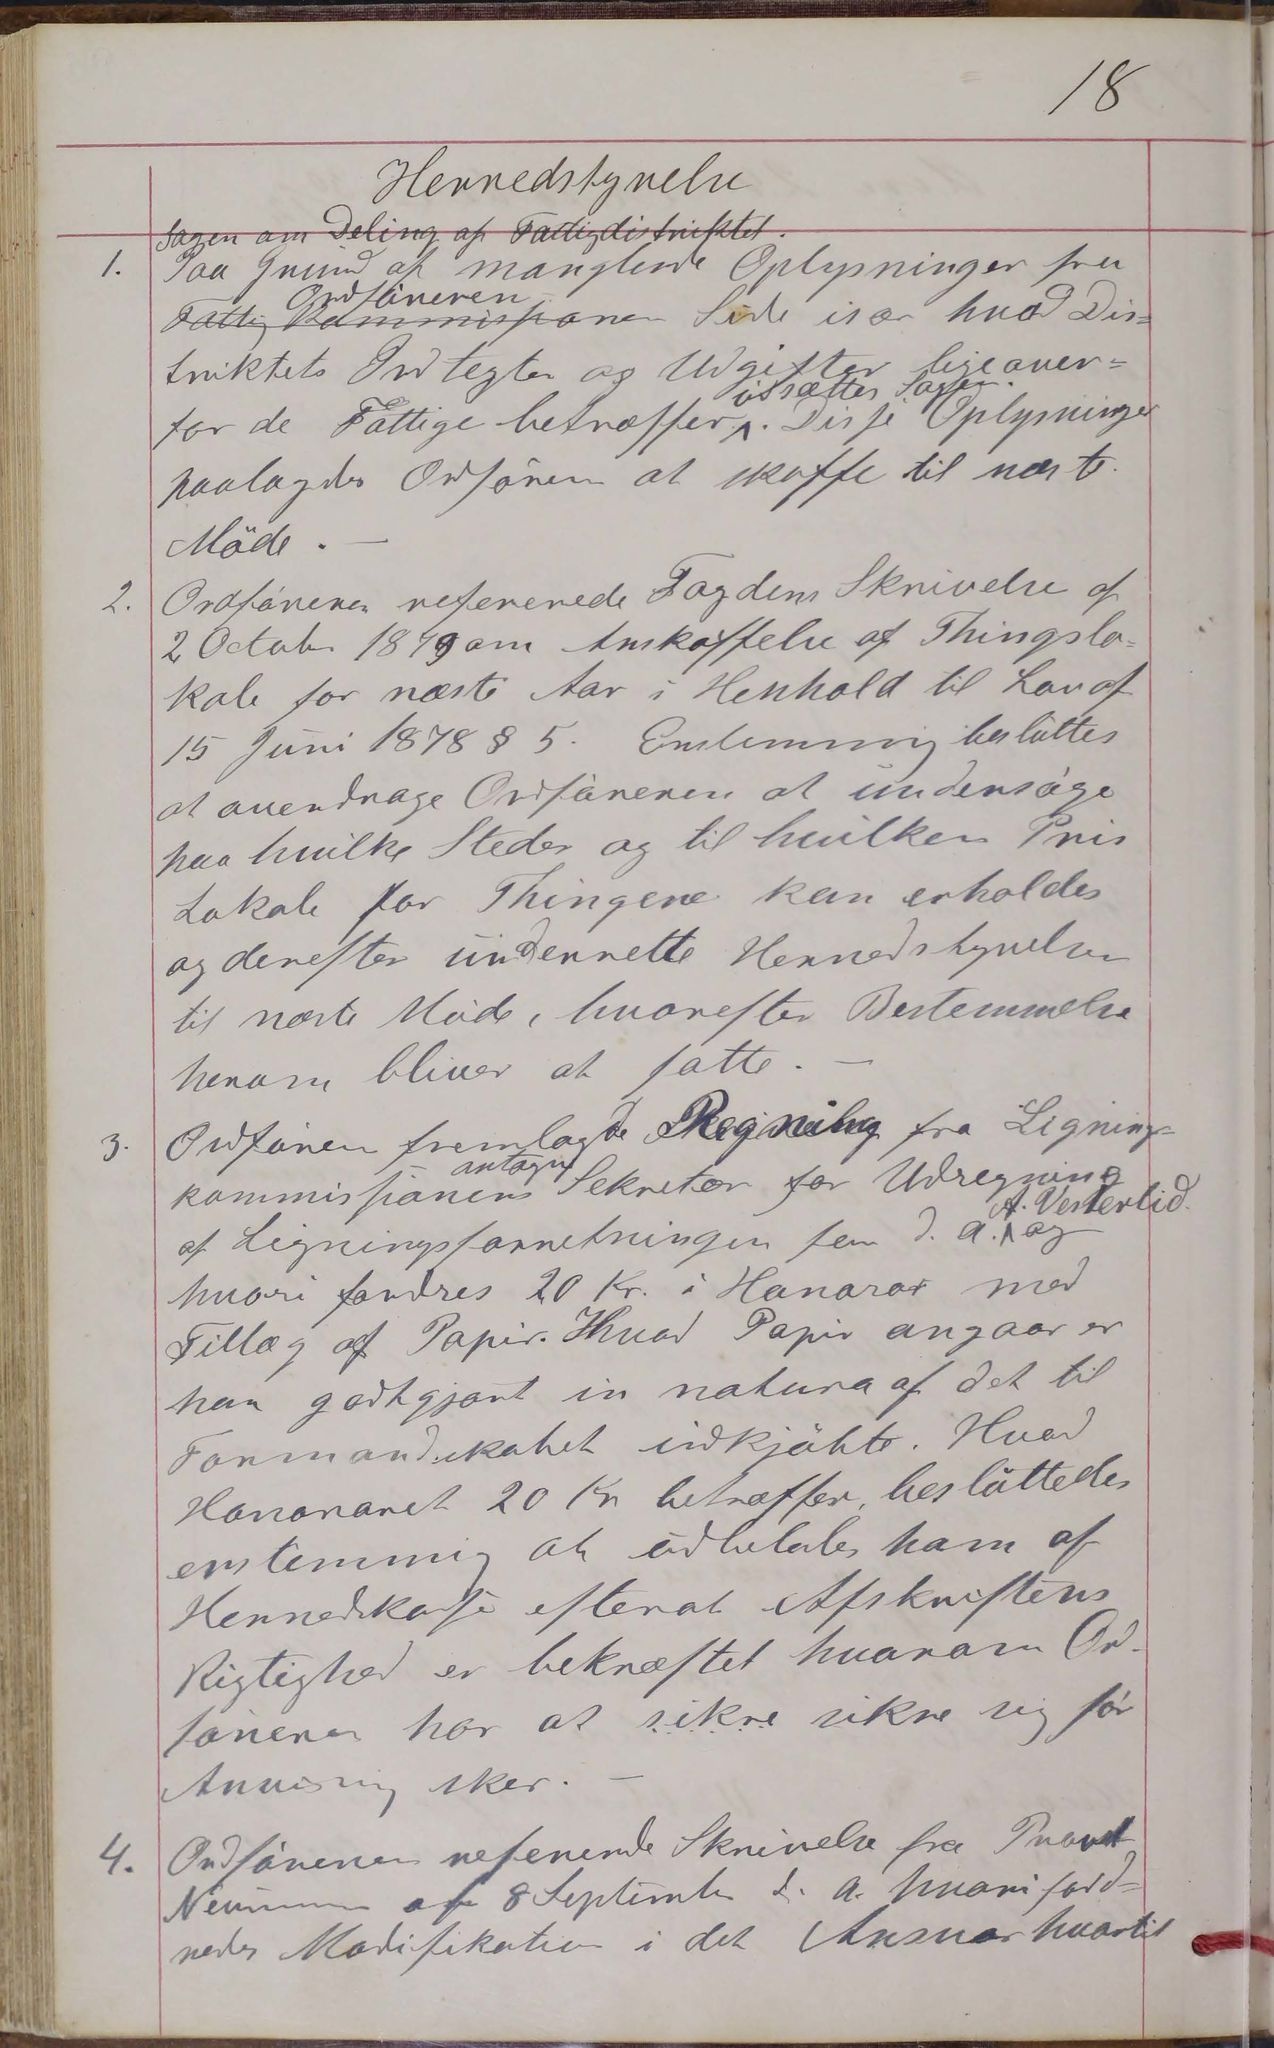 18
Herredstyrelse
Sagen om Deling af Fattigdistriktet.
1. Paa Grund af manglende Oplysninger fra
Ordføreren
Fattig Kommissionen Side især hvad Dis=
triktets Indtegter og Udgifter ligeover=
udsættes Sagen.
for de Fattige betræffer. Disse Oplysninger
paalagdes Ordføren at skaffe til næste
Møde. —
2. Ordføreren refererede Fogdens Skrivelse af
2 October 1879 om Anskaffelse af Thingslo=
kale for næste Aar i Henhold til Lov af
15 Juni 1878 § 5. Enstemmig besluttes
at overdrage Ordføreren at undersøge
paa hvilke Steder og til hvilken Pris
Lokale for Thingene kan erholdes
og derefter underrette Herredstyrelsen
til næste Møde, hvorefter Bestemmelse
herom bliver at fatte. —
3. Ordføren fremlagde Regning fra Lignings=
antagne
kommissionens Sekretær for Udregning
A. Vesterlid
af Ligningsforretningen for d. a. og
hvori fordres 20 Kr. i Honorar med
Tillæg af Papir. Hvad Papir angaar er
han godtgjort in natura af det til
Formandskabet indkjøbte. Hvad
Honoraret 20 Kr betræffer, besluttedes
enstemmig at udbetales ham af
Herredskasse efterat Afskriftens
Rigtighed er bekræftet hvorom Ord-
føreren har at sikre sikre sig før
Anvisning sker. —
4. Ordføreren refererede Skrivelse fra Provst
Neumann af 8 September d. a. hvori ford=
redes Modifikation i det Ansvar hvortil